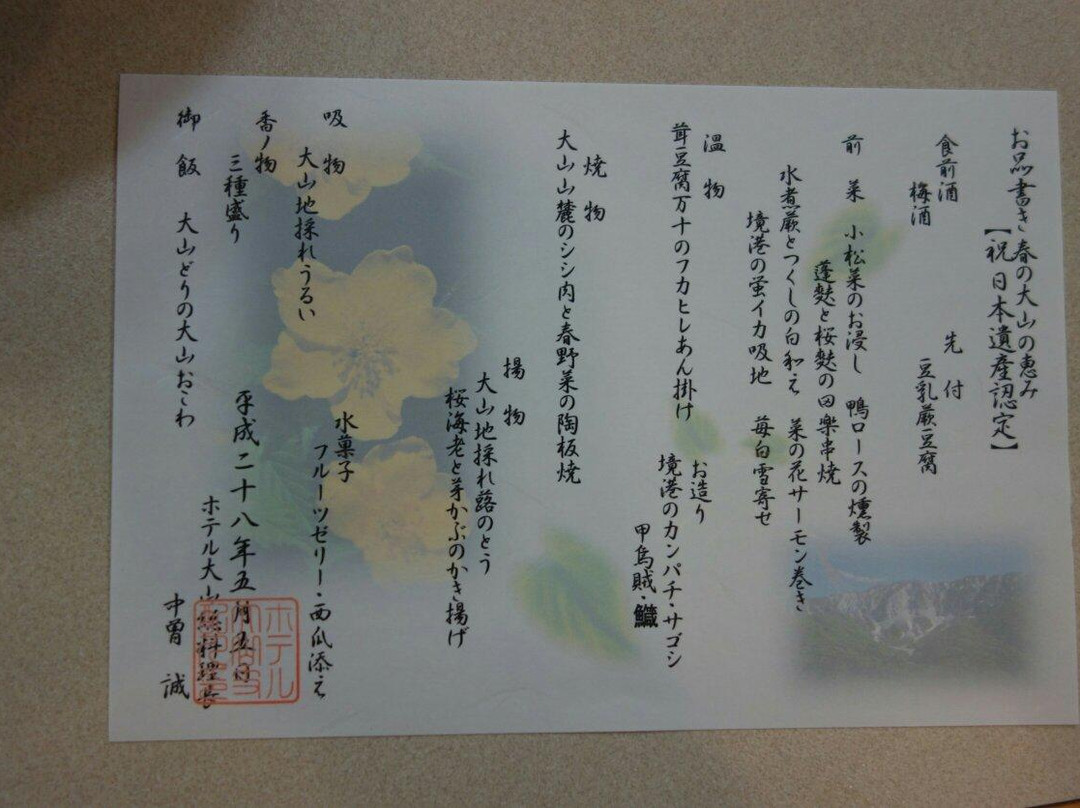 お品書き春の大山の恵み
【祝 日本遺産認定】
食前酒
梅酒
先付
豆乳蕨豆腐
前菜 小松菜のお浸し 鴨ロースの燻製
蓬麩と桜麩の田楽串焼
水煮蕨とつくしの白和え 菜の花サーモン巻き
境港の蛍イカ吸地 苺白雪寄せ
温物
茸豆腐万十のフカヒレあん掛け
お造り
境港のカンパチ・サゴシ
甲烏賊・鱵
焼物
大山山麓のシシ肉と春野菜の陶板焼
揚物
大山地採れ蕗のとう
桜海老と芽かぶのかき揚げ
吸物
大山地採れうるい
水菓子
フルーツゼリー・西瓜添え
香ノ物
三種盛り
御飯 大山どりの大山おこわ
平成二十八年五月五日
ホテル大山 総料理長
中曽 誠
ホテル